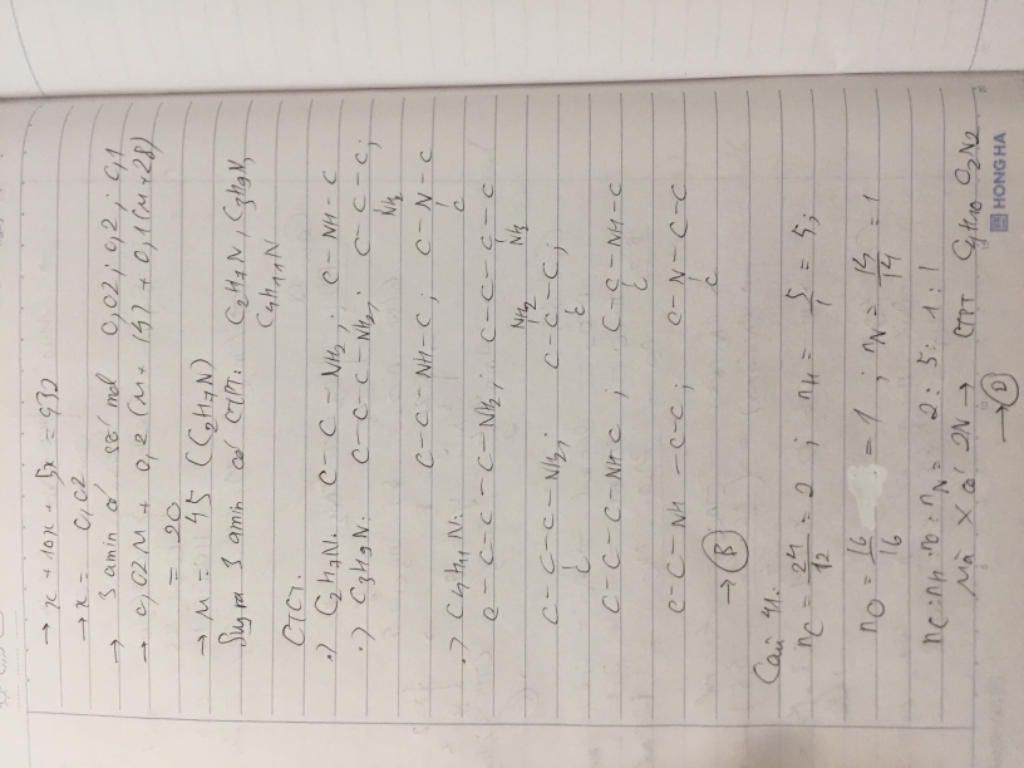 → x + 10x + 5x = 0,32
→ x = 0,02
→ 3 amin có số mol 0,02; 0,2; 0,1
→ 0,02M + 0,2(M + 14) + 0,1(M + 28)
= 20
→ M = 45 (C2H7N)
Suy ra 3 amin có CTPT: C2H7N, C3H9N,
C4H11N
CTCT.
·) C2H7N. C-C-NH2; C-NH-C
·) C3H9N. C-C-C-NH2; C-C-C;
NH2
C-C-NH-C; C-N-C
C
·) C4H11N.
C-C-C-C-NH2; C-C-C-C-C
NH2
NH2
C-C-C-NH2; C-C-C;
C C
C-C-C-NH-C; C-C-NH-C
C
C-C-NH-C-C; C-N-C-C
C
→ (B)
Câu 41.
nC = 24/12 = 2; nH = 5/1 = 5;
nO = 16/16 = 1; nN = 14/14 = 1
nC:nH:nO:nN = 2:5:1:1
Mà X có 2N → CTPT C4H10O2N2
→ (D)
HONG HA